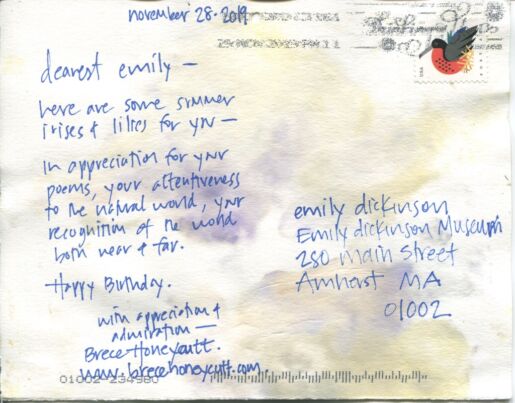 november 28. 2019
dearest emily —
here are some summer
irises & lilies for you —
in appreciation for your
poems, your attentiveness
to the natural world, your
recognition of the world
both near & far.
Happy Birthday.
with appreciation &
admiration —
Brece Honeycutt.
www.brecehoneycutt.com.
emily dickinson
Emily dickinson Museum
280 Main Street
Amherst MA
01002
USA
01002-234980